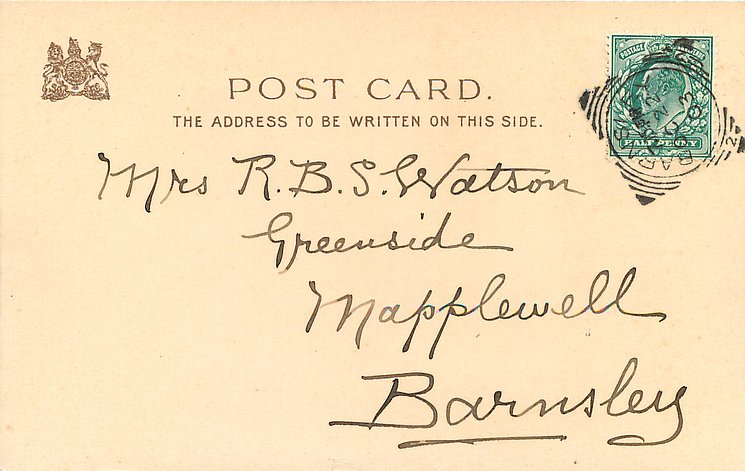 POST CARD.
THE ADDRESS TO BE WRITTEN ON THIS SIDE.
POSTAGE
HALFPENNY
Mrs R. B. S. Watson
Greenside
Mapplewell
Barnsley